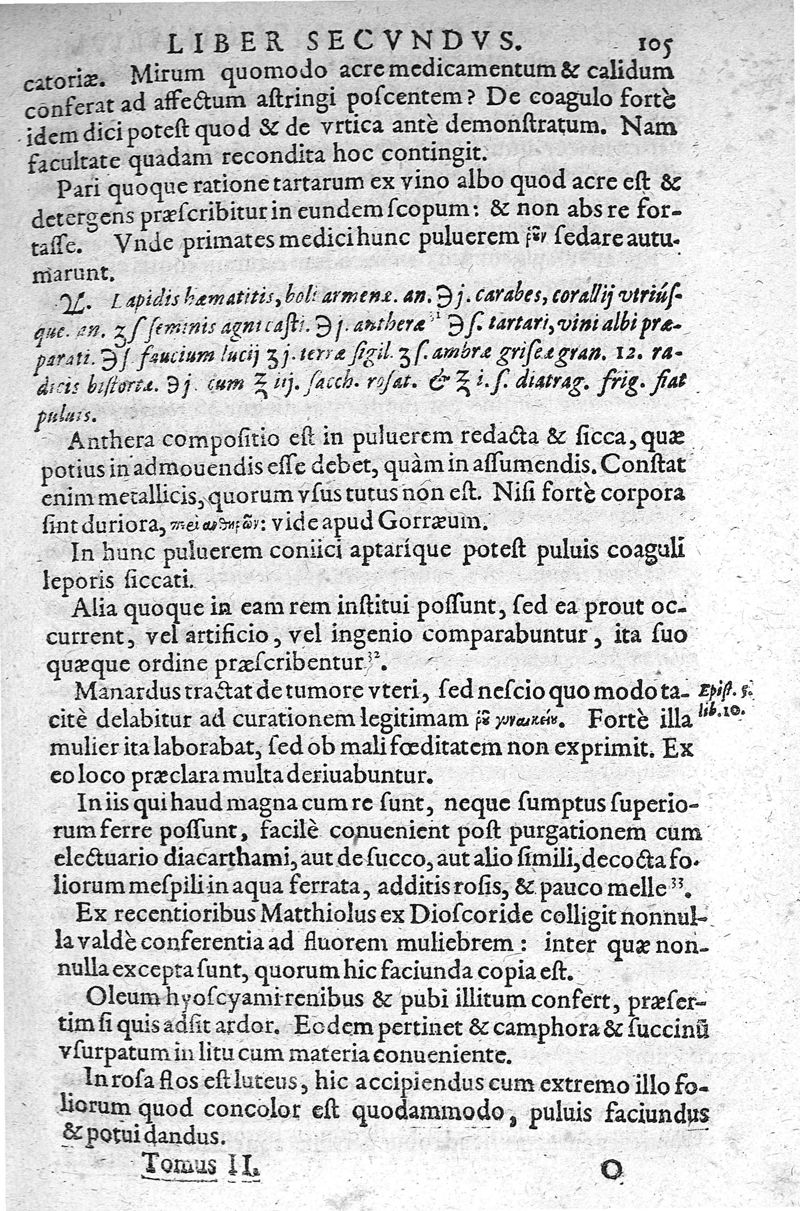 LIBER SECVNDVS. 105
catoriæ. Mirum quomodo acre medicamentum & calidum
conferat ad affectum aſtringi poſcentem? De coagulo fortè
idem dici poteſt quod & de vrtica antè demonſtratum. Nam
facultate quadam recondita hoc contingit.
Pari quoque ratione tartarum ex vino albo quod acre eſt &
detergens præſcribitur in eundem ſcopum: & non abs re for-
taſſe. Vnde primates medici hunc puluerem ſedare autu-
marunt.
℞. Lapidis hæmatitis, boli armenæ. an. ℈j. carabes, corallij vtriúſ-
que. an. ʒſ ſeminis agni caſti. ℈j. antheræ³¹ ℈ſ. tartari, vini albi præ-
parati. ℈ſ faucium lucij ʒj. terræ ſigil. ʒſ. ambræ griſeæ gran. 12. ra-
dicis biſtortæ. ℈j. cum ℥ iij. ſacch. roſat. & ℥ i. ſ. diatrag. frig. fiat
puluis.
Anthera compoſitio eſt in puluerem redacta & ſicca, quæ
potius in admouendis eſſe debet, quàm in aſſumendis. Conſtat
enim metallicis, quorum vſus tutus non eſt. Niſi fortè corpora
ſint duriora, : vide apud Gorræum.
In hunc puluerem coniici aptaríque poteſt puluis coaguli
leporis ſiccati.
Alia quoque in eam rem inſtitui poſſunt, ſed ea prout oc-
current, vel artificio, vel ingenio comparabuntur, ita ſuo
quæque ordine præſcribentur³².
Manardus tractat de tumore vteri, ſed neſcio quo modo ta- Epiſt. 5.
citè delabitur ad curationem legitimam . Fortè illa lib. 10.
mulier ita laborabat, ſed ob mali fœditatem non exprimit. Ex
eo loco præclara multa deriuabuntur.
In iis qui haud magna cum re ſunt, neque ſumptus ſuperio-
rum ferre poſſunt, facilè conuenient poſt purgationem cum
electuario diacarthami, aut de ſucco, aut alio ſimili, decocta fo-
liorum meſpili in aqua ferrata, additis roſis, & pauco melle³³.
Ex recentioribus Matthiolus ex Dioſcoride colligit nonnul-
la valdè conferentia ad fluorem muliebrem: inter quæ non-
nulla excepta ſunt, quorum hic faciunda copia eſt.
Oleum hyoſcyami renibus & pubi illitum confert, præſer-
tim ſi quis adſit ardor. Eodem pertinet & camphora & ſuccinū
vſurpatum in litu cum materia conueniente.
In roſa flos eſt luteus, hic accipiendus cum extremo illo fo-
liorum quod concolor eſt quodammodo, puluis faciundus
& potui dandus.
Tomus II. O